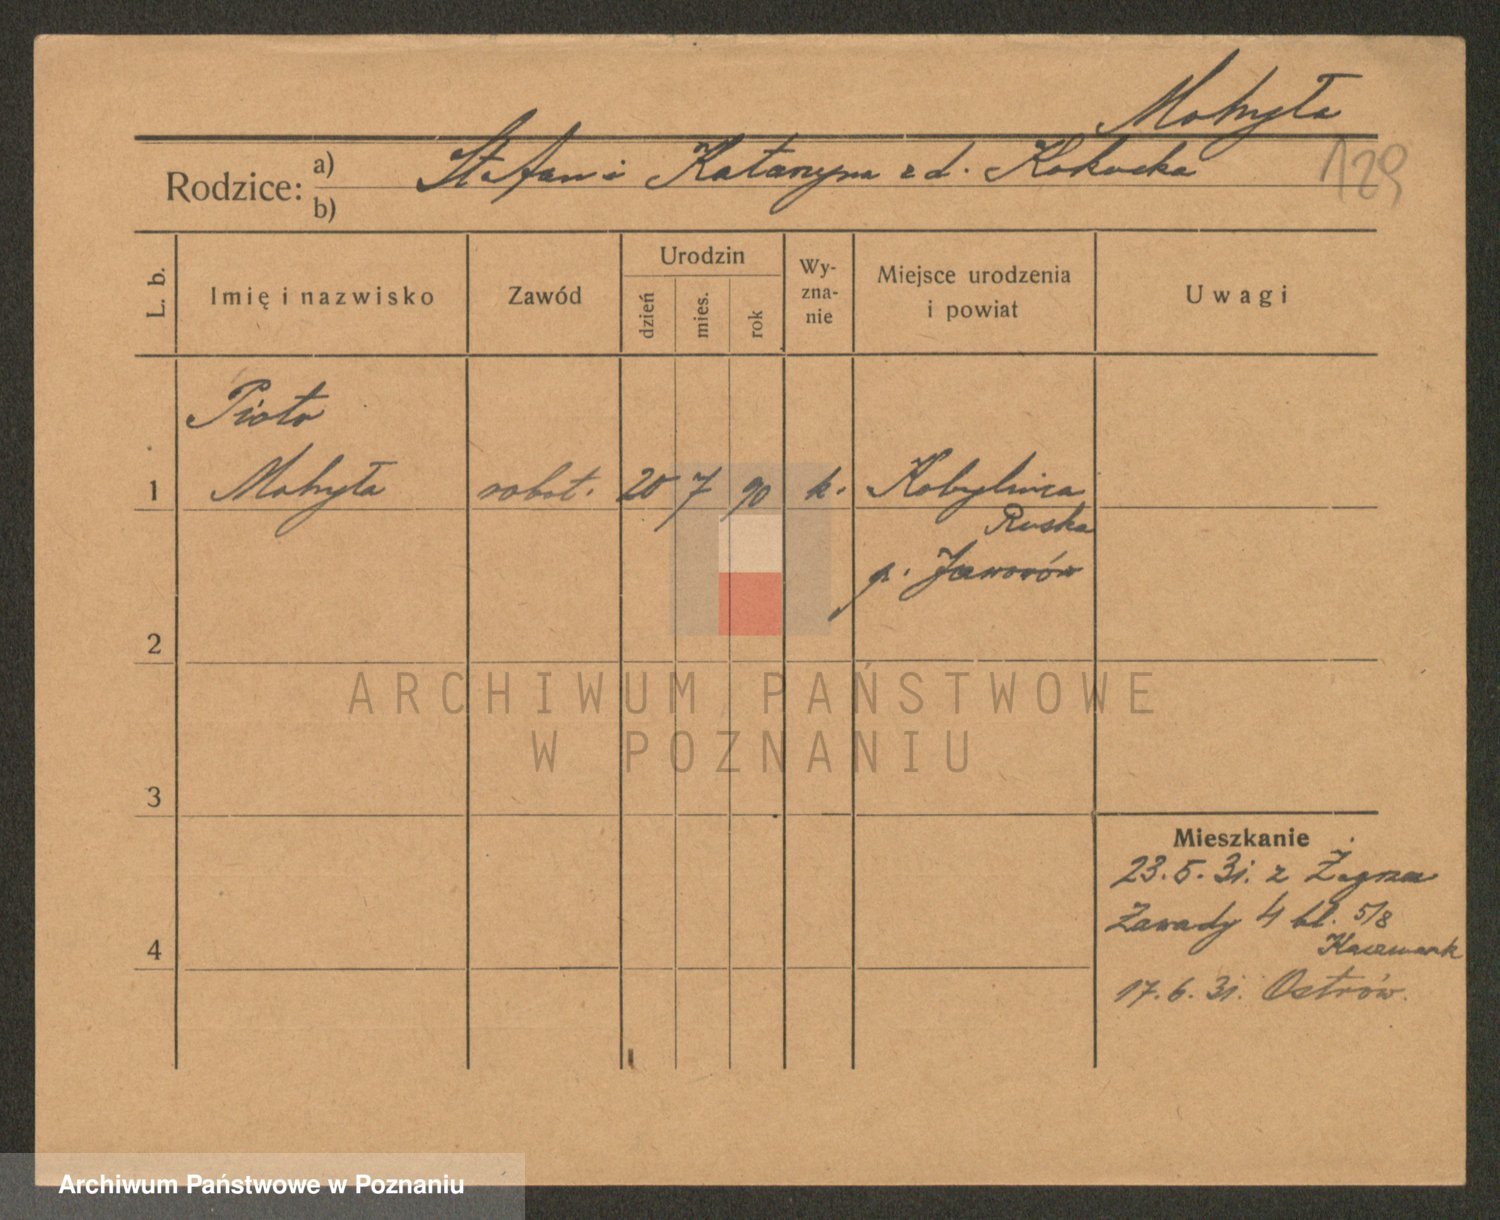 Motryła
Rodzice: a) Stefan i Katarzyna z d.
b)
129
L. b.
Imię i nazwisko
Zawód
Urodzin
dzień
mies.
rok
Wy-
zna-
nie
Miejsce urodzenia
i powiat
Uwagi
Piotr
1 Motryła robot. 20 7 90 k. Kobylnica
Ruska
p. Jaworów
2
ARCHIWUM PAŃSTWOWE
W POZNANIU
3
Mieszkanie
23.5.31. z Żegrza
Zawady 4 bl. 5/8
4
17.6.31. Ostrów.
Archiwum Państwowe w Poznaniu